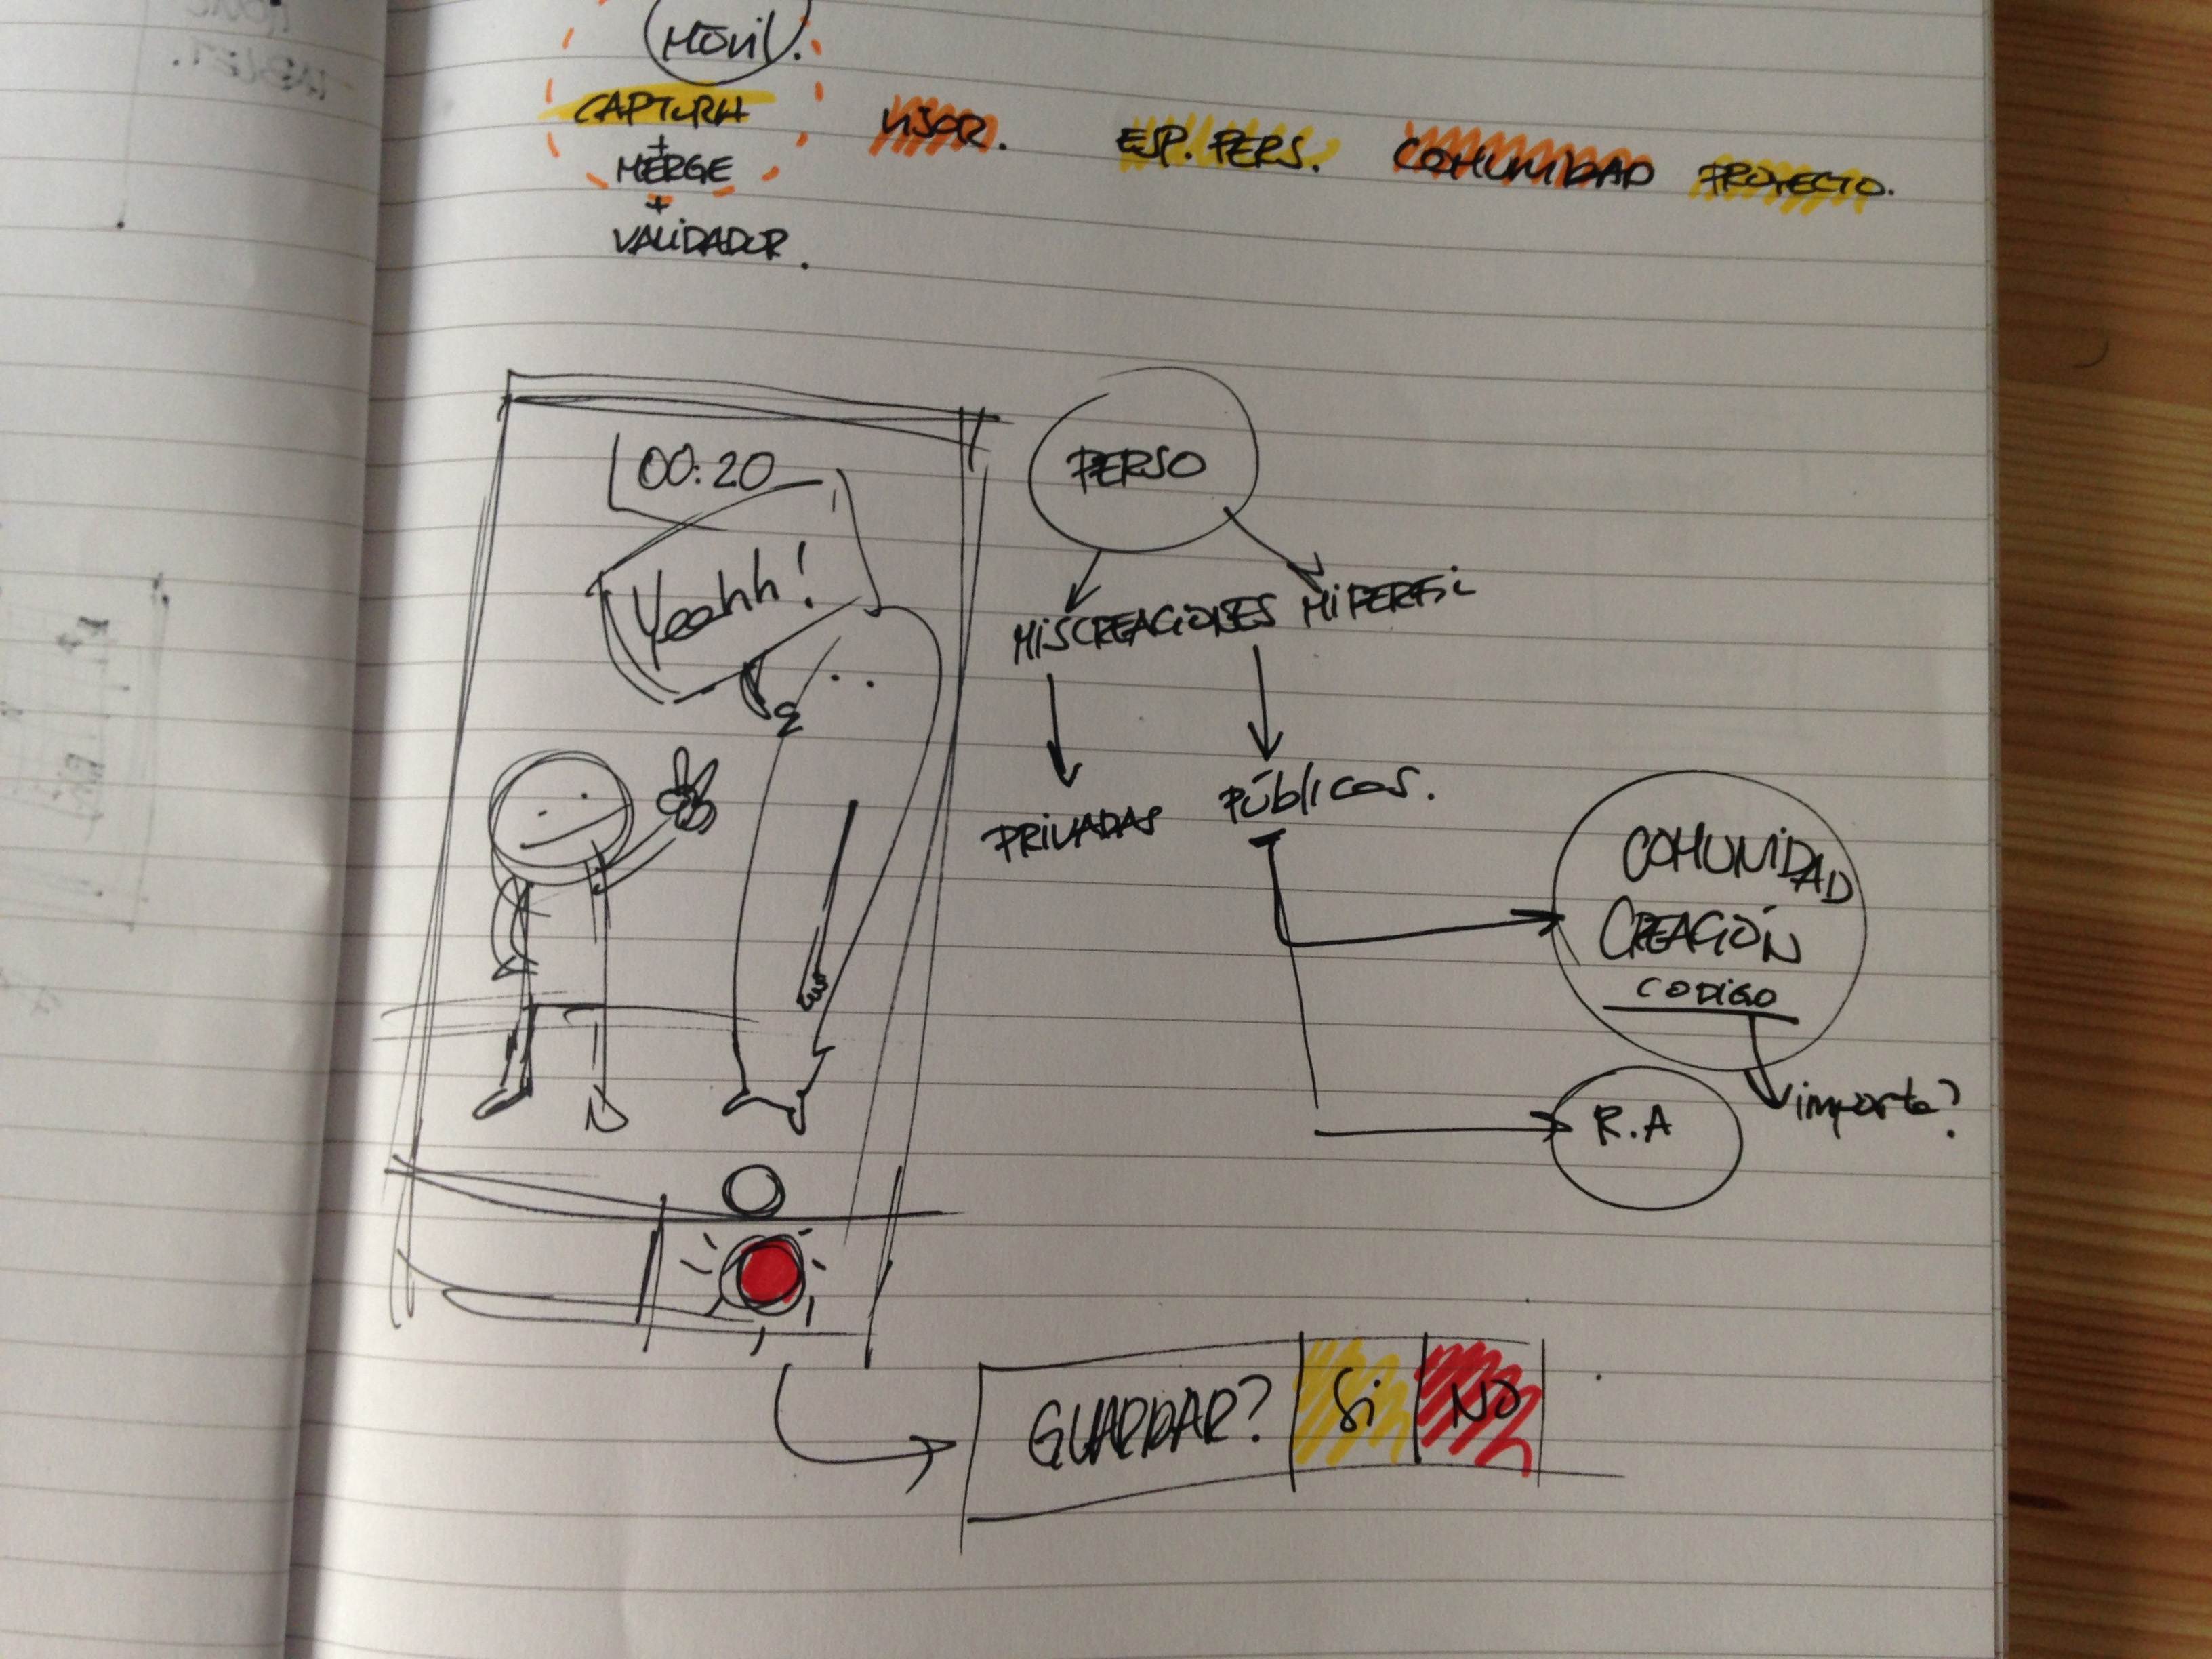 MÓVIL.
CAPTURA
+
MERGE
+
VALIDADOR.
VISOR.
ESP. PERS.
COMUNIDAD
PROYECTO.
00:20
Yeahh!
PERSO
MIS CREACIONES
MI PERFIL
PRIVADAS
PÚBLICAS.
COMUNIDAD
CREACIÓN
CODIGO
importa?
R.A
GUARDAR?
Si
NO